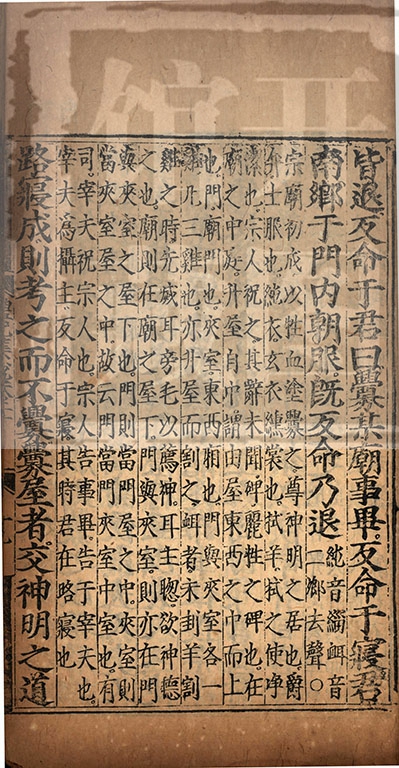 皆退反命于君曰釁某廟事畢反命于寢君
南鄉于門內朝服既反命乃退
純音緇衈音
二鄉去聲○
宗廟初成以牲血塗釁之尊神明之居也爵
弁士服也純衣玄衣纁裳也拭羊拭之使淨
潔也宗人祝之其辭未聞碑麗牲之碑也在
廟之中庭升屋自中謂由屋東西之中而上
也門廟門也夾室東西廂也門與夾室各一
雞凡三雞也亦升屋而割之衈者未刲羊割
雞之時先滅耳旁毛以薦神耳主聽欲神聽
之也廟則在廟之屋下門與夾室則亦在門
與夾室之屋下也門則當門屋之中夾室則
當夾室屋之中故云門當門夾室中室也有
司宰夫祝宗人也宗人告事畢告于宰夫也
宰夫為攝主反命于寢其時君在路寢也
路寢成則考之而不釁釁屋者交神明之道